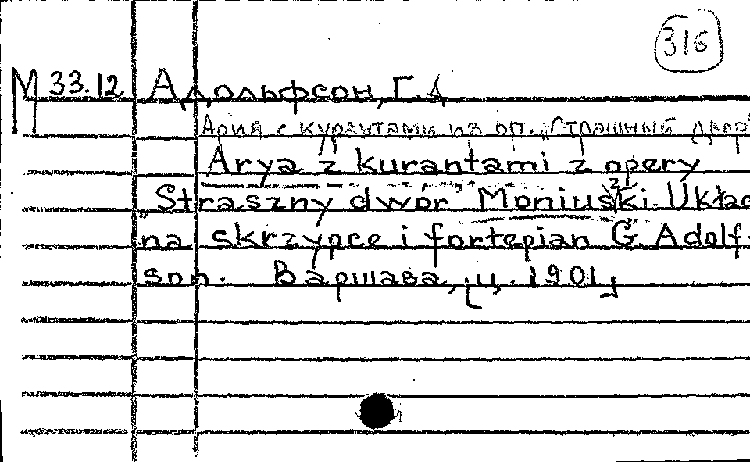 316
М 33.12 Адольфсон, Г. А
Ария с курантами из оп. „Страшный двор"
Arya z kurantami z opery
„Straszny dwor" Moniuszki Układ
na skrzypce i fortepian G Adolf-
son. Варшава, ц. 1901